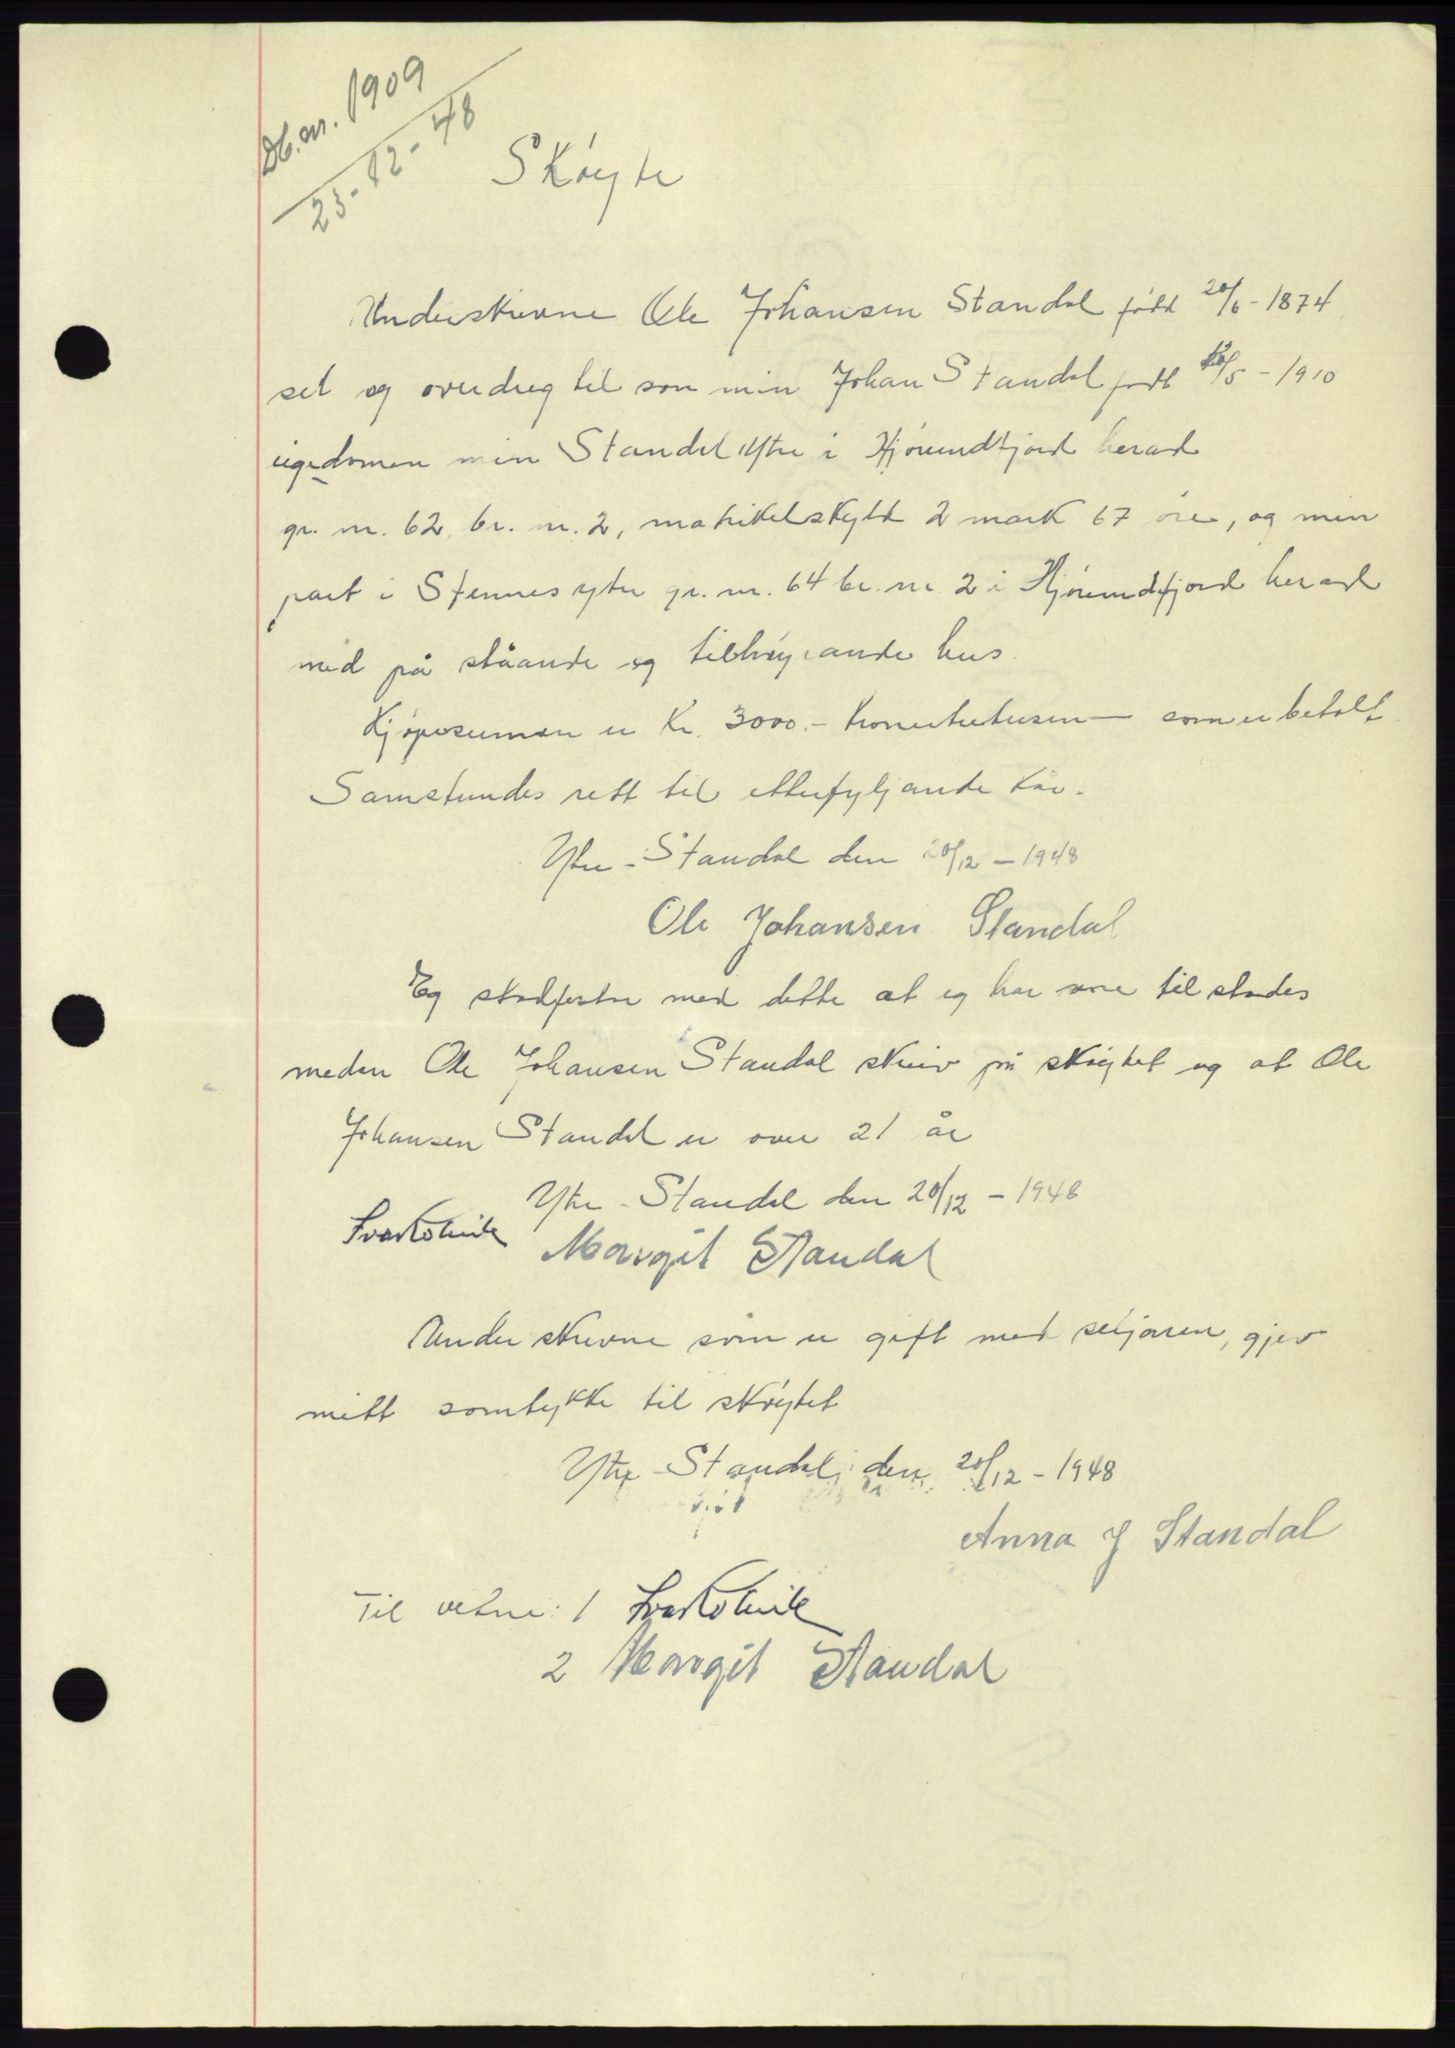 Db.nr. 1909
23-12-48
Skøyte
Underskrevne Ole Johansen Standal født 20/6-1874
sel og overdreg til son min Johan Standal født /5-1910
eigedomen min Standal ytre i Hjørundfjord herad
gr. nr. 62, br. nr. 2, matrikelskyld 2 mark 67 øre, og min
part i Stennes ytre gr. nr. 64 br. nr 2 i Hjørundfjord herad
med på ståande og tilhøyrande hus.
Kjøpesumen er Kr. 3000.- Kronertretusen— som er betalt
Samstundes rett til etterfyljande kår.
Ytre-Standal den 20/12-1948
Ole Johansen Standal
Eg stadfester med dette at eg har vore til stades
meden Ole Johansen Standal skreiv på skøytet og at Ole
Johansen Standal er over 21 år
Ytre-Standal den 20/12-1948
Margit Standal
Underskrevne som er gift med seljaren, gjev
mitt samtykke til skøytet
Ytre-Standal, den 20/12-1948
Anna J Standal
Til vitne: 1
2 Margit Standal